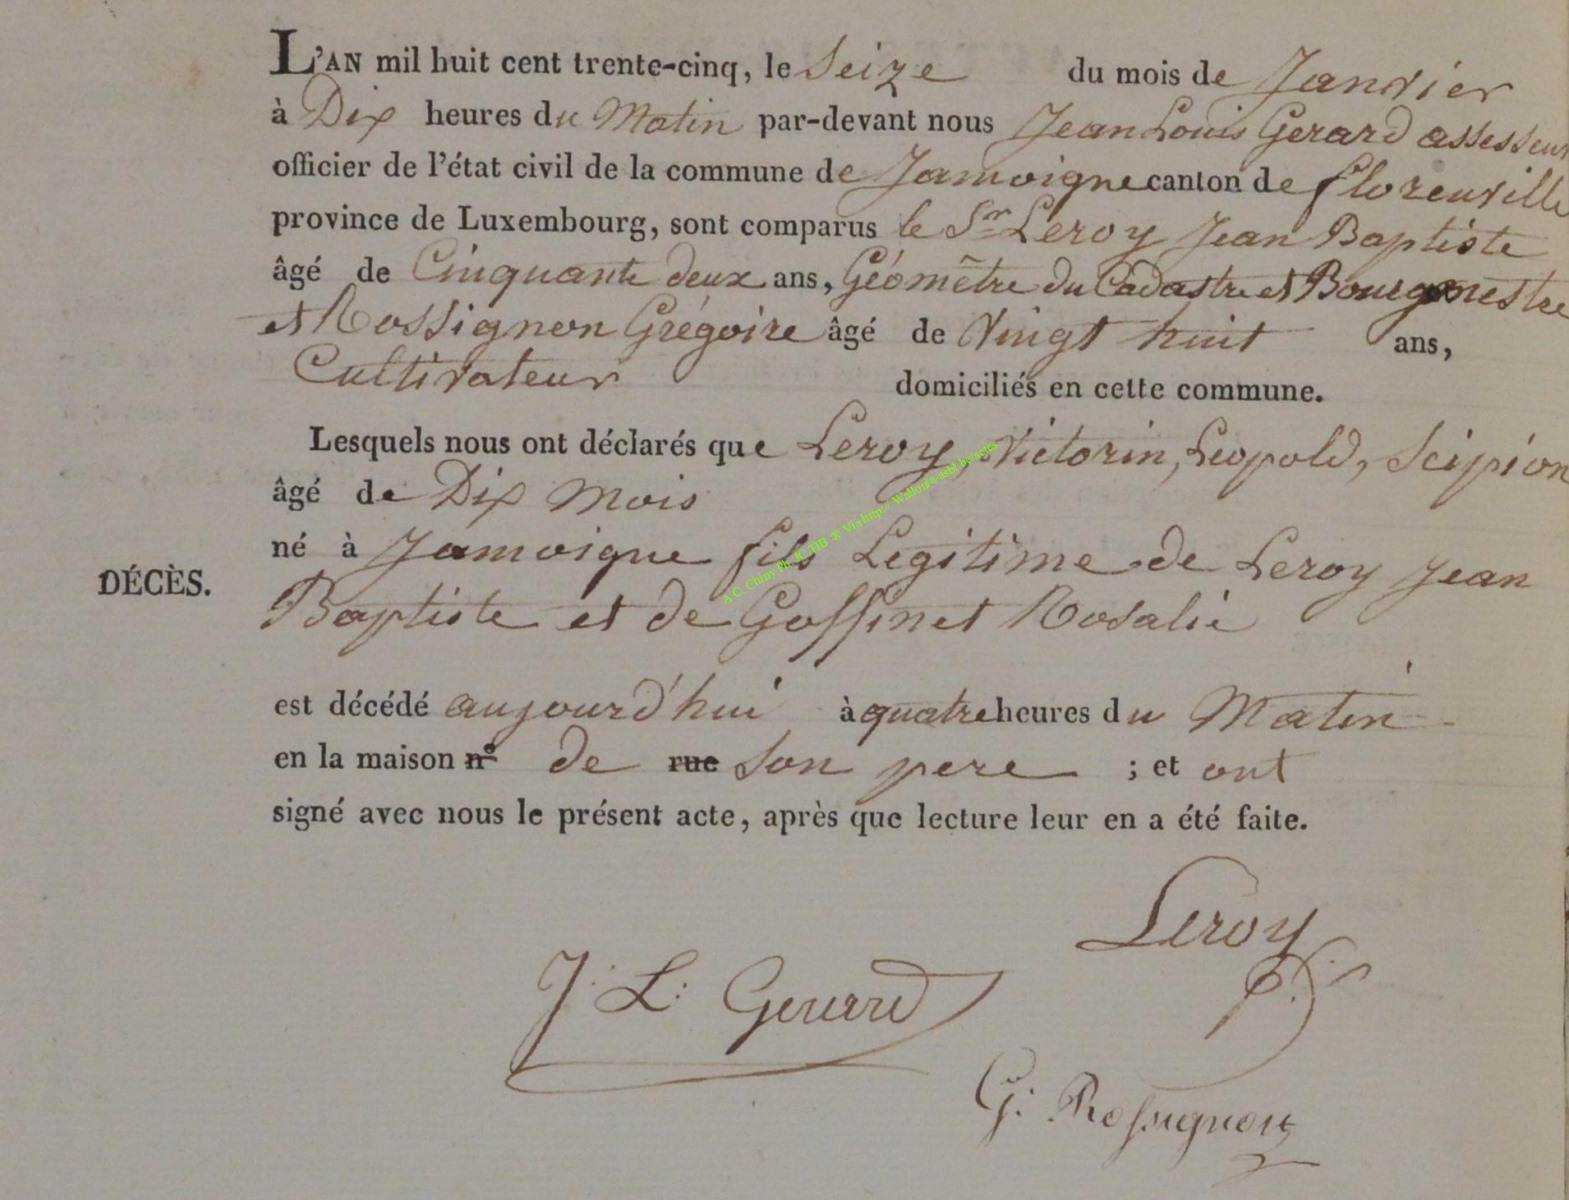 L'AN mil huit cent trente-cinq, le Seize du mois de Janvier
à Dix heures du Matin par-devant nous Jean Louis Gerard assesseur
officier de l'état civil de la commune de Jamoigne canton de florenville
province de Luxembourg, sont comparus le Sr Leroy Jean Baptiste
âgé de Cinquante deux ans, Géomêtre du Cadastre et Bourgmestre
et Rossignon Grégoire âgé de Vingt huit ans,
Cultivateur domiciliés en cette commune.
Lesquels nous ont déclarés que Leroy, Victorin, Leopold, Scipion
âgé de Dix mois
né à Jamoigne fils Legitime de Leroy Jean
DÉCÈS.
Baptiste et de Goffinet Rosalie
est décédé aujourd'hui à quatre heures du Matin
en la maison n° de rue son pere ; et ont
signé avec nous le présent acte, après que lecture leur en a été faite.
Leroy
J. L. Gerard
G. Rossignon